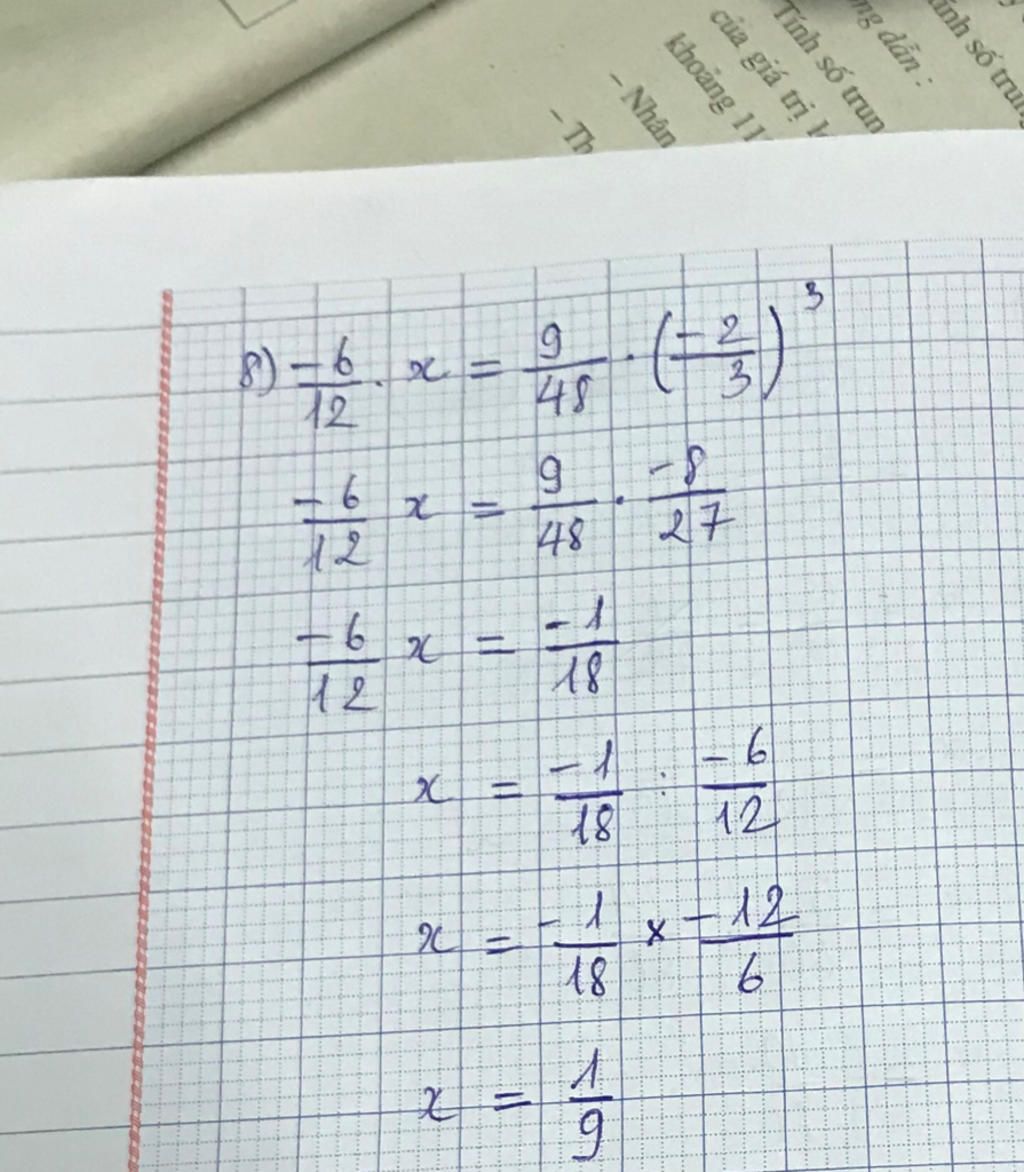 ính số trung
ng dẫn :
Tính số trun
của giá trị
khoảng 11
– Nhân
– Th
8) -6/12 . x = 9/48 . (-2/3)^3
-6/12 x = 9/48 . -8/27
-6/12 x = -1/18
x = -1/18 : -6/12
x = -1/18 × -12/6
x = 1/9